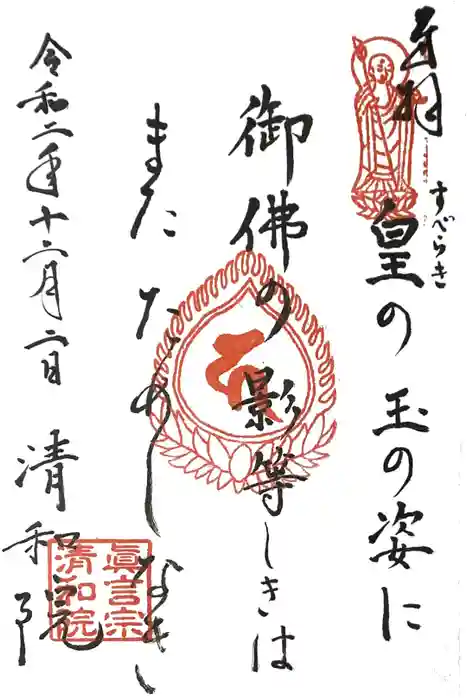 奉拝
皇の玉の姿に
すべらき
御佛の影等しきは
またたのもしきなれ
令和二年十二月二日
清和院
眞言宗
清和院